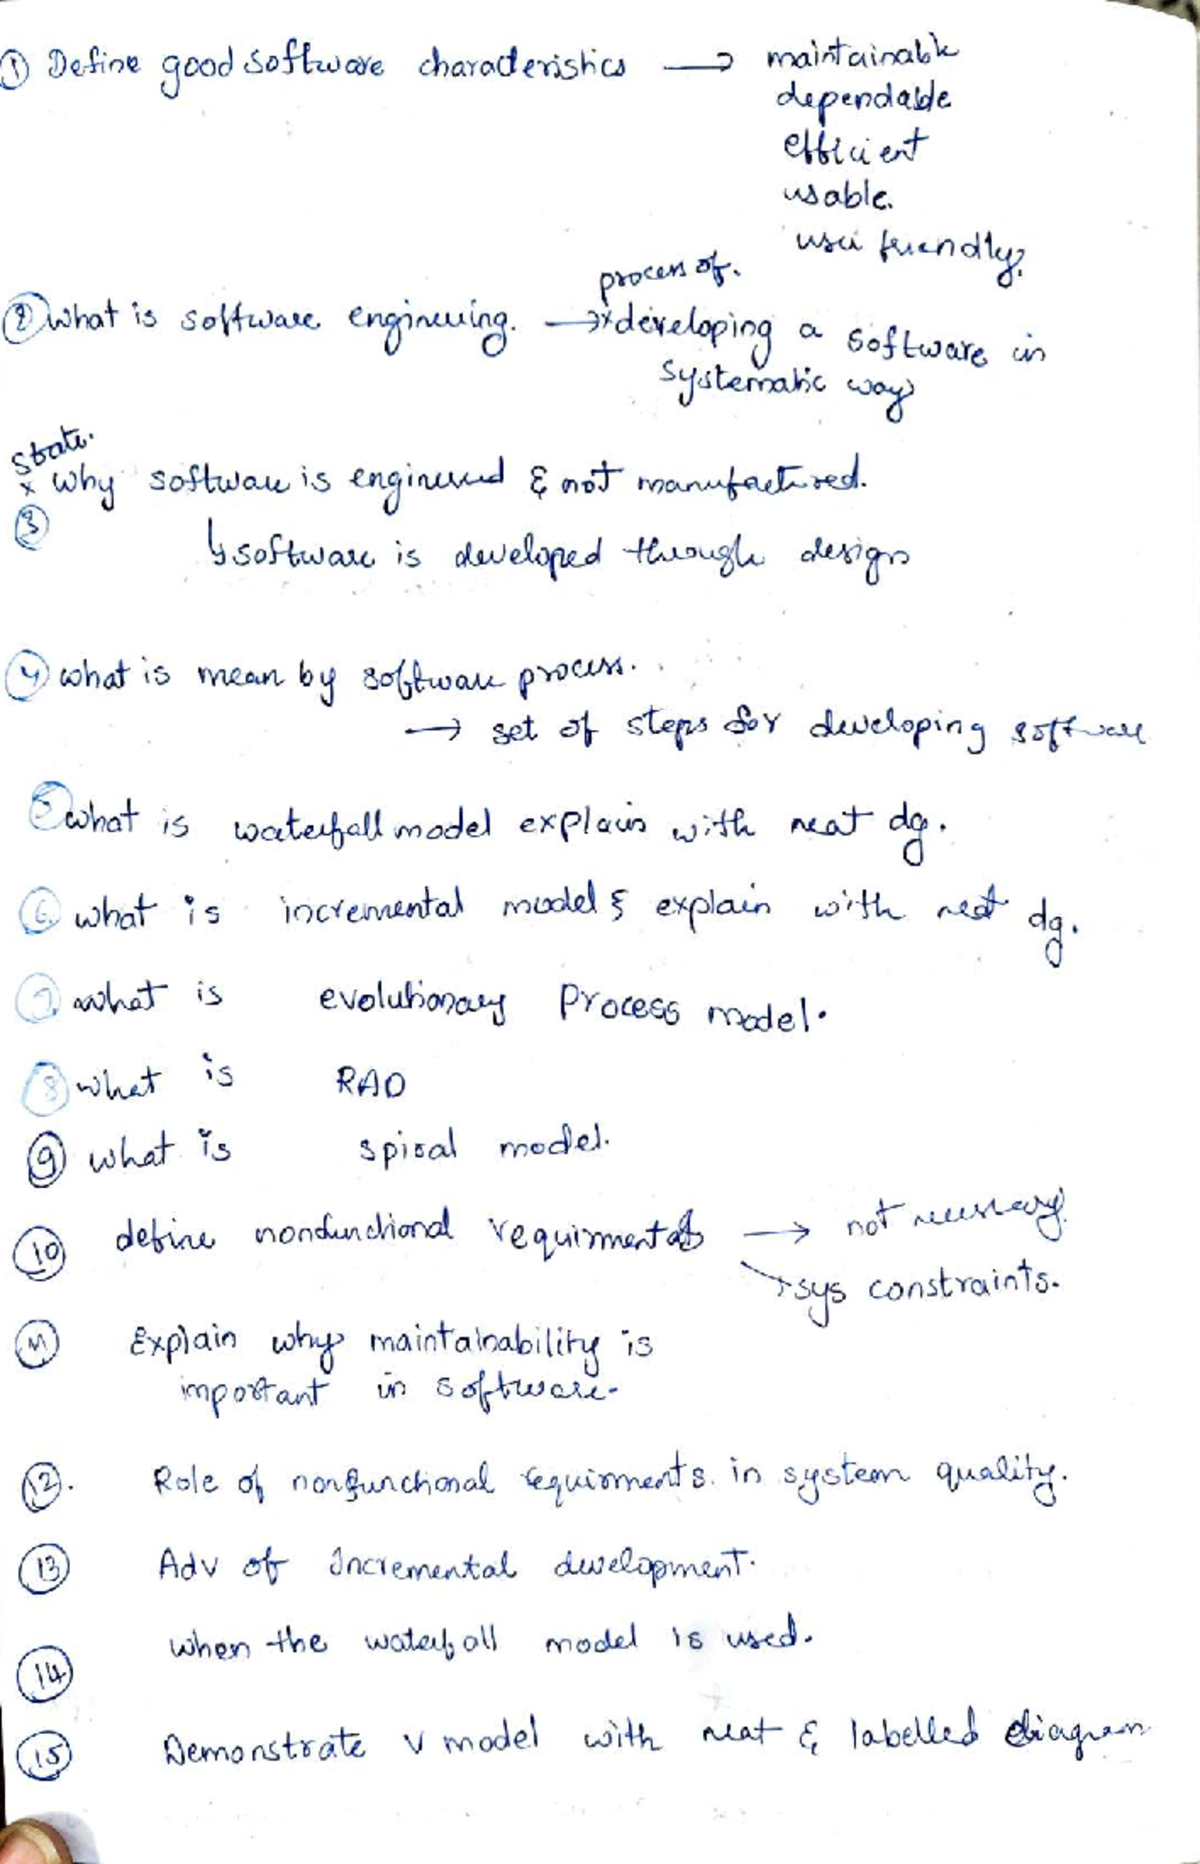 ① Define good software characteristics → maintainable
dependable
efficient
usable.
user friendly.
process of.
② What is software engineering. → * developing a software in
systematic way
state.
x Why software is engineered & not manufactured.
③
↳ software is developed through design
④ what is mean by software process.
→ set of steps for developing software
⑤ what is waterfall model explain with neat dg.
⑥ what is incremental model & explain with neat dg.
⑦ what is evolutionary Process model.
⑧ what is RAD
⑨ what is spiral model.
⑩ define nonfunctional requirments → not necessary.
→ sys constraints.
⑪ Explain why maintainability is
important in software.
⑫. Role of nonfunctional requirments. in system quality.
⑬ Adv of Incremental development.
⑭ when the waterfall model is used.
⑮ Demonstrate v model with neat & labelled diagram